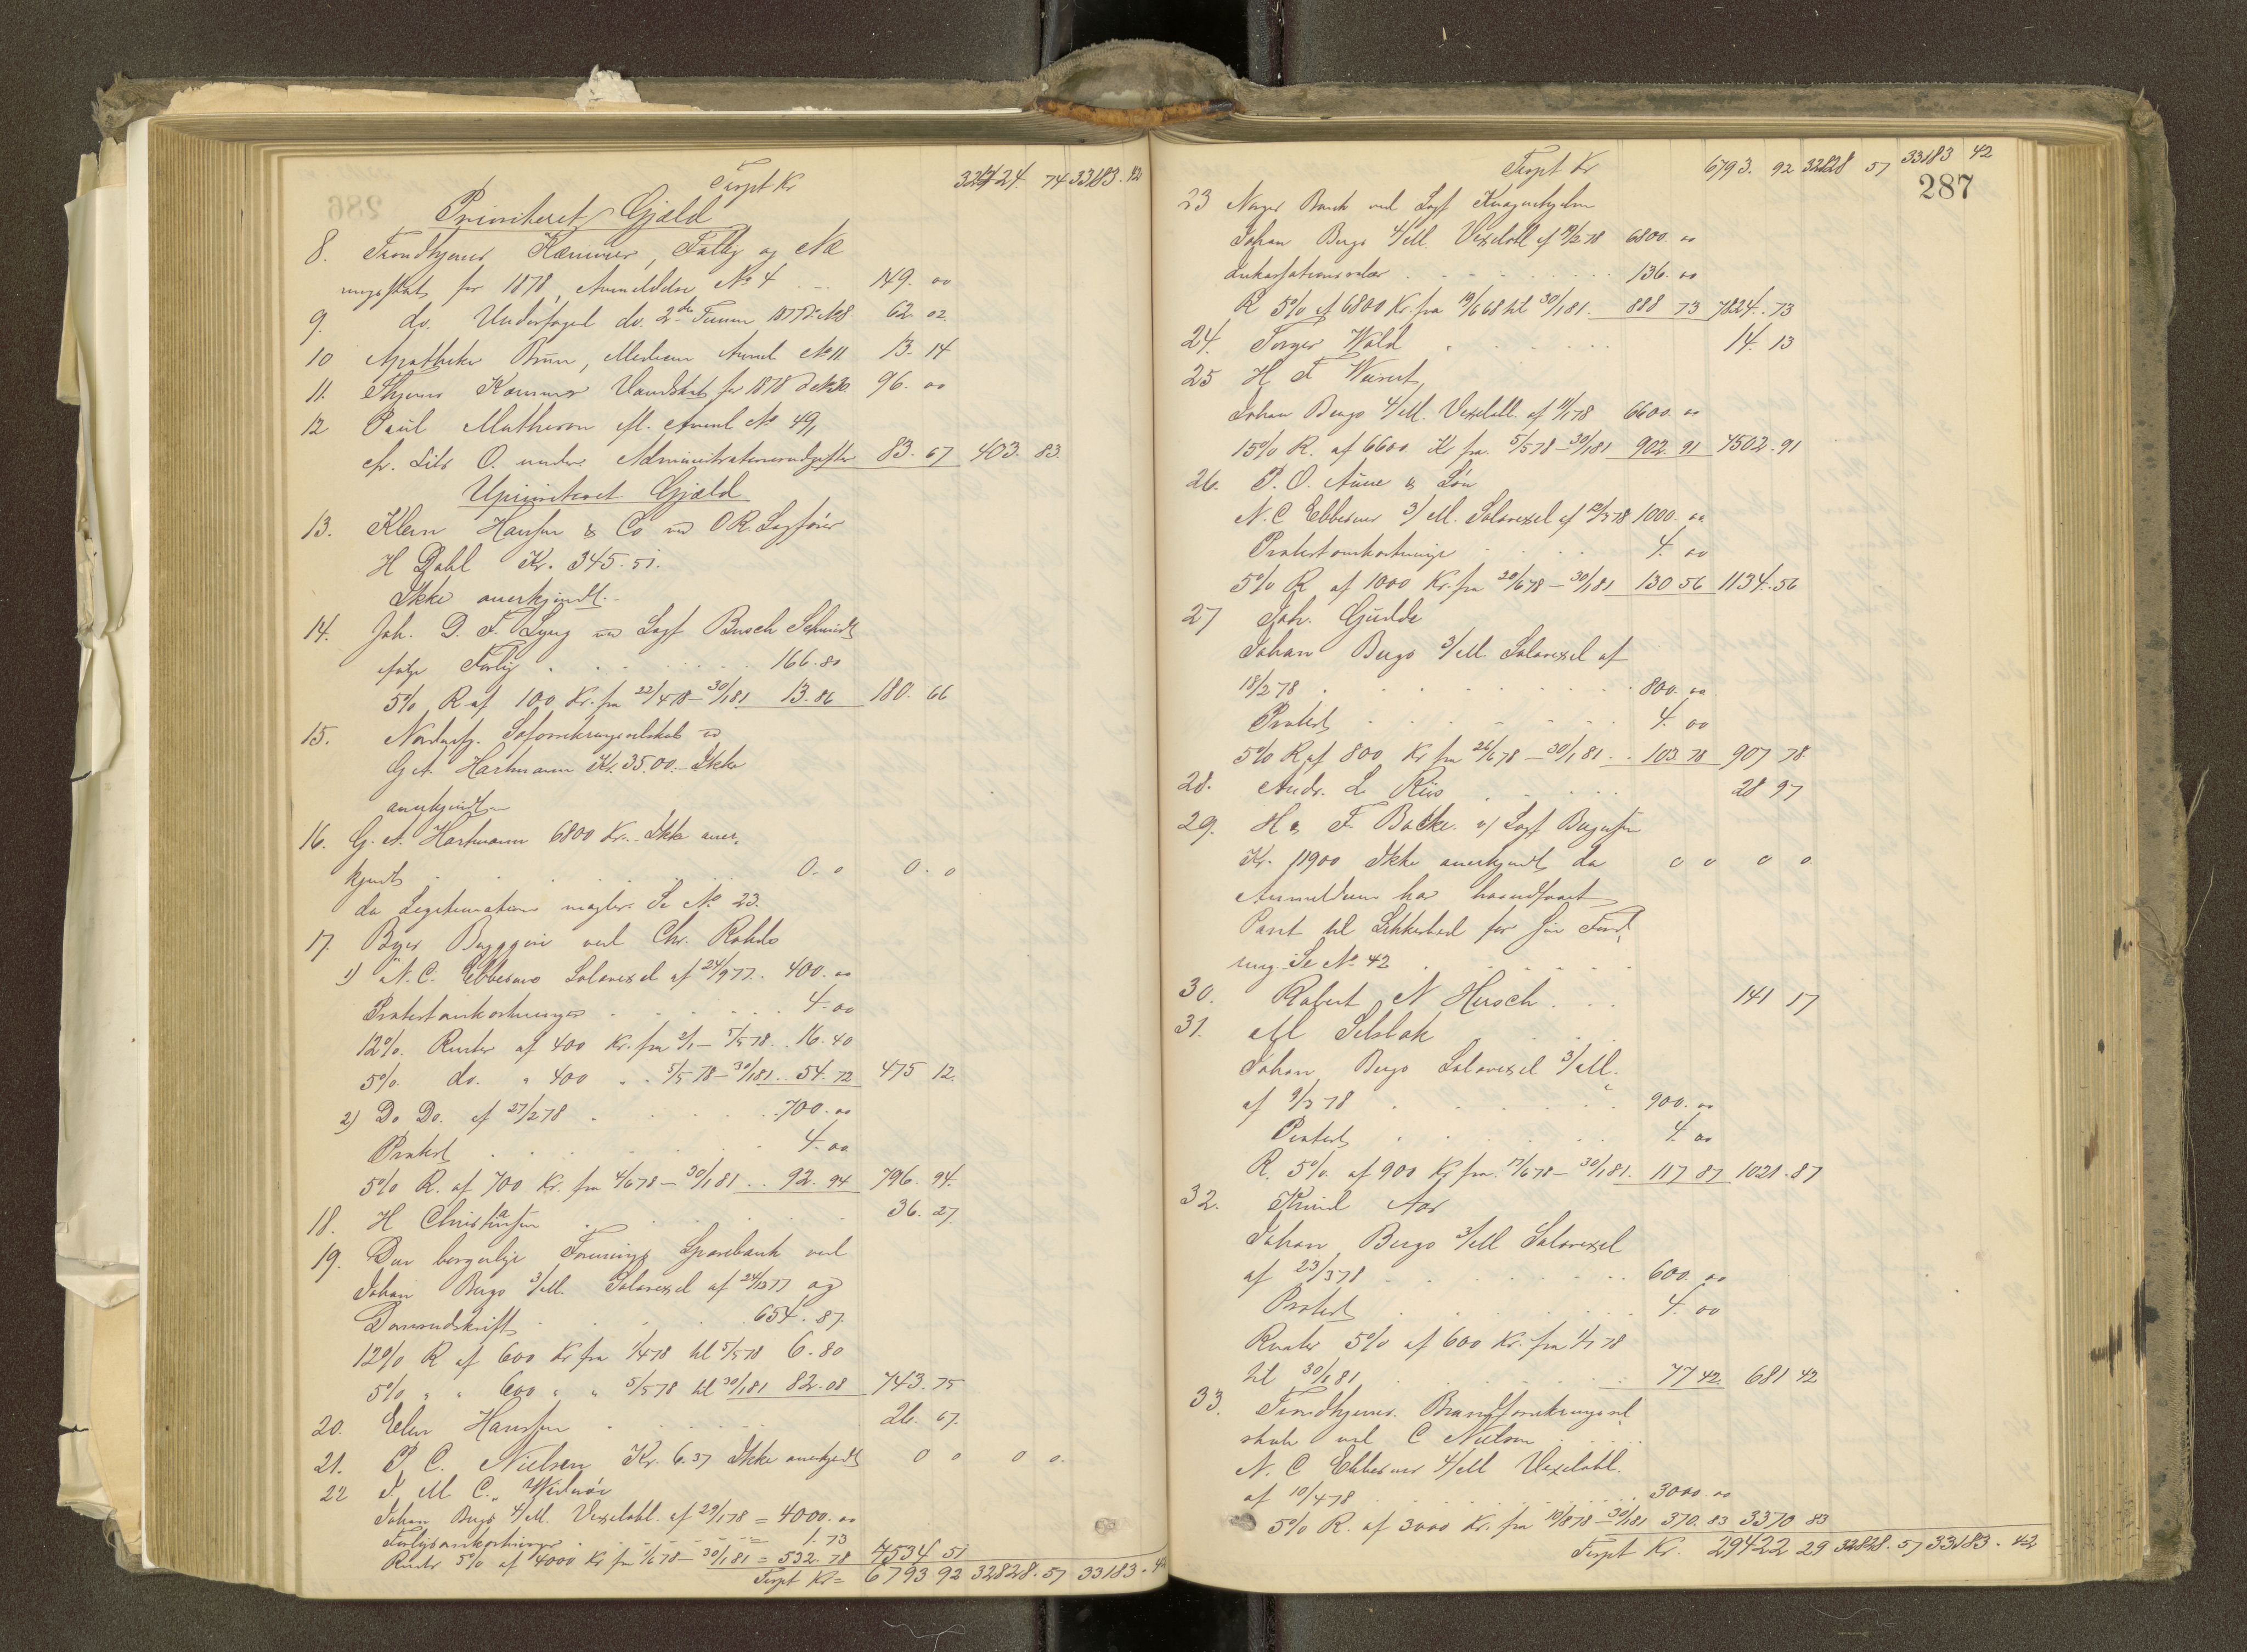 Trspt Kr 32424. 74 33183. 42
Prioriteret Gjæld
8. Trondhjems Kæmner, Fattig og Næ
ringsskat for 1878, Anmeldelse No 4 149. 00
9. do. Underfoged do. 2den Termin 1877 No 8. 62. 02.
10 Apotheker Bruun, Medicin Anml No 11 13. 14
11. Thjems Kæmner Vandskat for 1878 96. 00
12 Paul Matheson efl. Anml No 49,
cfr. Litr O. under Administrationsudgifter 83. 67 403. 83.
Uprioriteret Gjæld
13. Klem Hansen & Co ved OR. Sagfører
H Dahl Kr. 345. 51.
Ikke anerkjendt.
14. Joh. D. F. Lyng ved Sagf Busch Schmidt
ifølge Forlig 166. 80
5% R. af 100 Kr. fra 22/4 78 - 30/1 81 13. 86 180. 66
15. Nordenfj. Søforsikringsselskab ved
G. A. Hartmann Kr. 3500. Ikke
anerkjendt
16. G. A. Hartmann 6800 Kr. Ikke aner-
kjendt 0. 0 0. 0
da Legitimation mangler. Se No 23.
17. Byes Bryggeri ved Chr. Rohde
1) N. C. Ebbesens Solavexel af 24/9 77. 400. 00
Protestomkostninger 4. 00
12%. Renter af 400 Kr. fra 2/1 - 5/5 78 16. 40
5% do. " 400 " " 5/5 78 - 30/1 81 54. 72 475 12.
2) Do Do. af 27/2 78 700. 00
Protest 4. 00
5% R. af 700 Kr. fra 4/6 78 - 30/1 81 92. 94 796. 94.
18. H Christiansen 36. 27
19. Den borgerlige Forenings Sparebank ved
Johan Bergs 3/Md. Solavexel af 24/12 77 og
Domsudskrift 654. 87.
12% R af 600 Kr fra 1/4 78 til 5/5 78 6. 80
5% " " 600 " " 5/5 78 til 30/1 81 82. 08 743. 75
20. Elen Hanssen 26. 67.
21. P. C. Nielsen Kr. 6. 37 Ikke anerkjendt 0 0 0 0.
22 F. M. C.
Johan Bergs 4/Md. Vexelobl. af 29/1 78 = 4000. 00
Forligsomkostninger = 1. 73
Renter 5% af 4000 Kr fra 1/6 78 - 30/1 81 = 532. 78 4534 51
Trspt Kr = 6793 92 32828. 57 33183. 42
Trspt Kr 6793. 92 32828 57 33183 42
287
23 Norges Bank ved Sagf Knagenhjelm
Johan Bergs 4/Md. Vexelobl af 19/2 78 6800. 00
Inkassationssalær 136. 00
R 5% af 6800 Kr. fra 19/6 68 til 30/1 81. 888 73 7824. 73
24. Torger Wold 14. 13
25 H F
Johan Bergs 4/Md. Vexelobl. af 11/1 78 6600. 00
15% R. af 6600 Kr fra 5/5 78 - 30/1 81 902. 91 7502. 91
26. P. O. Aune & Søn
N. C Ebbesens 3/Md. Solavexel af 1000. 00
Protestomkostninger 4. 00
5% R. af 1000 Kr. fra 20/6 78 - 30/1 81 130 56 1134. 56
27 Joh. Gudde
Johan Bergs 3/Md. Solavexel af
18/2 78 800. 00
Protest 4. 00
5% R af 800 Kr fra 26/6 78 - 30/1 81 103. 78 907 78.
28. Andr. L. Riis 28 97
29. H & F Bakke v/ Sagf
Kr. 11900 Ikke anerkjendt da 0 0 0 0.
Anmelderen har haandfaaet
Pant til Sikkerhed for sin Ford-
ring. Se No 42
30. Robert N Hirsch 141 17
31. M Selbak
Johan Bergs Solavexel 3/Md.
af 9/3 78 900. 00
Protest 4. 00
R. 5% af 900 Kr fra 17/6 78 - 30/1 81. 117 87 1021. 87
32. Knud Aas
Johan Bergs 3/Md Solavexel
af 23/3 78 600. 00
Protest 4. 00
Renter 5% af 600 Kr. fra 1/7 78
til 30/1 81 77 42. 681 42
33. Trondhjems Brandforsikringssel-
skab ved C Nielsen
N. C Ebbesens 4/Md Vexelobl.
af 10/4 78 3000. 00
5% R. af 3000 Kr. fra 10/8 78 - 30/1 81 370. 83 3370 83
Trspt Kr. 29422 29 32828. 57 33183. 42